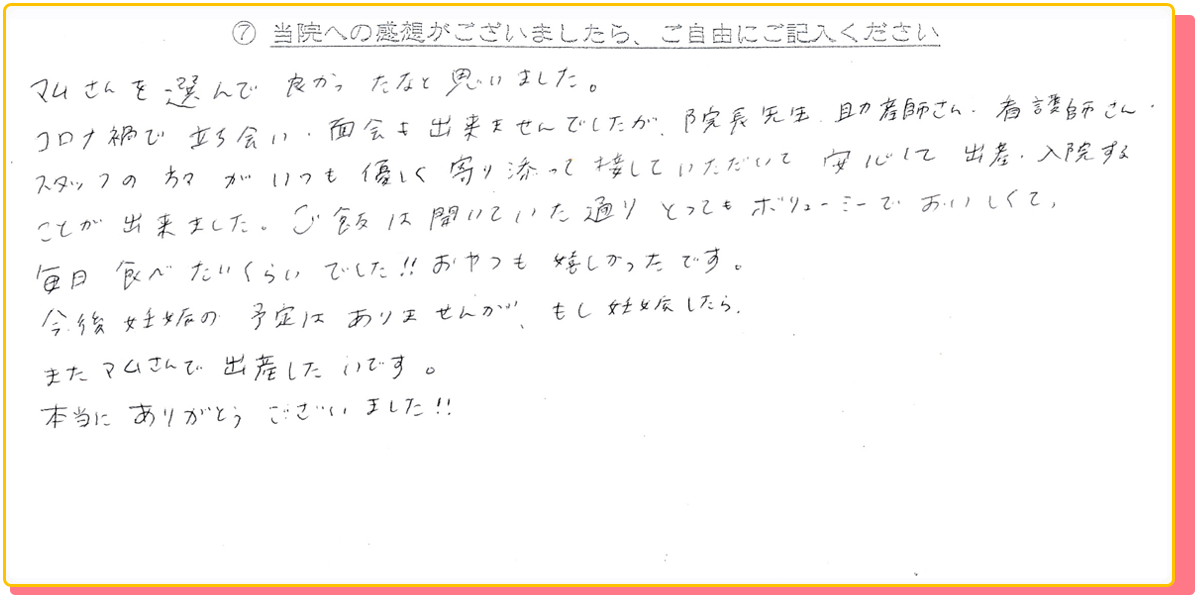 ⑦ 当院への感想がございましたら、ご自由にご記入ください
マムさんを選んで良かったなと思いました。
コロナ禍で立ち会い・面会も出来ませんでしたが、院長先生、助産師さん・看護師さん・
スタッフの方々がいつも優しく寄り添って接していただいて安心して出産・入院する
ことが出来ました。ご飯は聞いていた通りとってもボリューミーでおいしくて、
毎日食べたいくらいでした!!おやつも嬉しかったです。
今後妊娠の予定はありませんが、もし妊娠したら、
またマムさんで出産したいです。
本当にありがとうございました!!